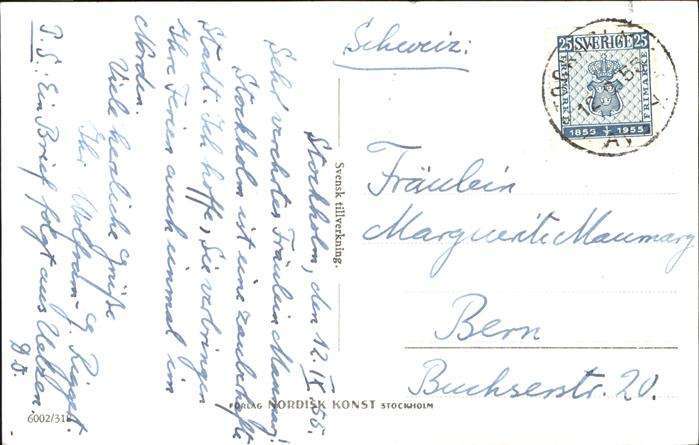 Stockholm, den 12. IX. 55.
Sehr verehrtes Fräulein Maumary!
Stockholm ist eine zauberhafte
Stadt. Ich hoffe, Sie verbringen
Ihre Ferien auch einmal im
Norden.
Viele herzliche Grüße
Ihr Wolfram
P.S: Ein Brief folgt aus Uelzen.
D.O.
Svensk tillverkning.
Schweiz:
25 SVERIGE 25
FRIMÄRKE
1855 1955
Fräulein
Marguerite Maumary
Bern
Buchserstr. 20.
FÖRLAG NORDISK KONST STOCKHOLM
6002/318